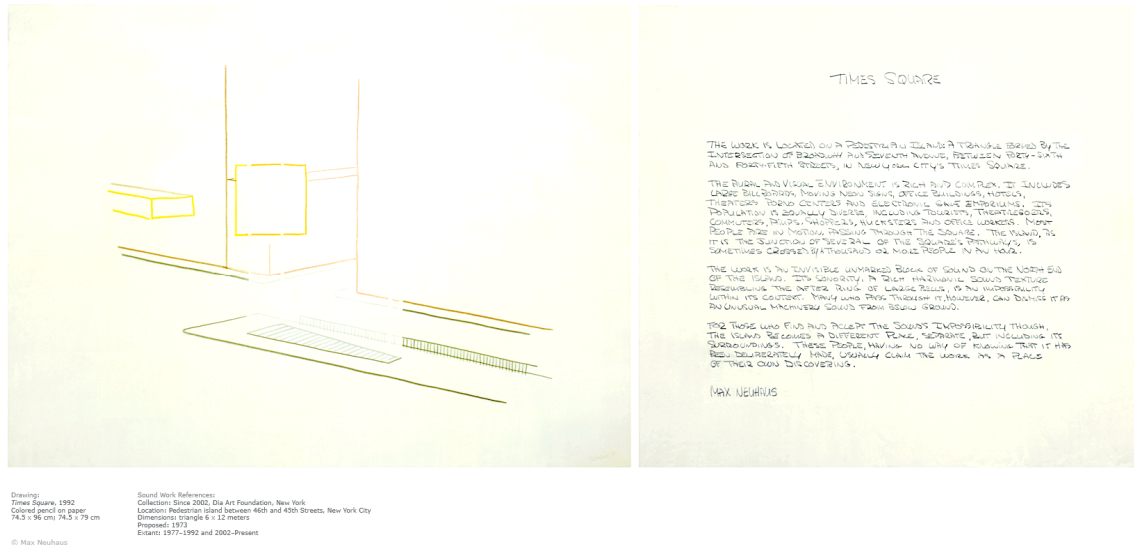 TIMES SQUARE
THE WORK IS LOCATED ON A PEDESTRIAN ISLAND: A TRIANGLE FORMED BY THE
INTERSECTION OF BROADWAY AND SEVENTH AVENUE, BETWEEN FORTY-SIXTH
AND FORTY-FIFTH STREETS, IN NEW YORK CITY'S TIMES SQUARE.
THE AURAL AND VISUAL ENVIRONMENT IS RICH AND COMPLEX. IT INCLUDES
LARGE BILLBOARDS, MOVING NEON SIGNS, OFFICE BUILDINGS, HOTELS,
THEATERS, PORNO CENTERS AND ELECTRONIC GAME EMPORIUMS. ITS
POPULATION IS EQUALLY DIVERSE, INCLUDING TOURISTS, THEATERGOERS,
COMMUTERS, PIMPS, SHOPPERS, HUCKSTERS AND OFFICE WORKERS. MOST
PEOPLE ARE IN MOTION, PASSING THROUGH THE SQUARE. THE ISLAND, AS
IT IS THE JUNCTION OF SEVERAL OF THE SQUARE'S PATHWAYS, IS
SOMETIMES CROSSED BY A THOUSAND OR MORE PEOPLE IN AN HOUR.
THE WORK IS AN INVISIBLE UNMARKED BLOCK OF SOUND ON THE NORTH END
OF THE ISLAND. ITS SONORITY, A RICH HARMONIC SOUND TEXTURE
RESEMBLING THE AFTER RING OF LARGE BELLS, IS AN IMPOSSIBILITY
WITHIN ITS CONTEXT. MANY WHO PASS THROUGH IT, HOWEVER, CAN DISMISS IT AS
AN UNUSUAL MACHINERY SOUND FROM BELOW GROUND.
FOR THOSE WHO FIND AND ACCEPT THE SOUND'S IMPOSSIBILITY THOUGH,
THE ISLAND BECOMES A DIFFERENT PLACE, SEPARATE, BUT INCLUDING ITS
SURROUNDINGS. THESE PEOPLE, HAVING NO WAY OF KNOWING THAT IT HAS
BEEN DELIBERATELY MADE, USUALLY CLAIM THE WORK AS A PLACE
OF THEIR OWN DISCOVERING.
MAX NEUHAUS
Drawing:
Times Square, 1992
Colored pencil on paper
74.5 x 96 cm; 74.5 x 79 cm
© Max Neuhaus
Sound Work References:
Collection: Since 2002, Dia Art Foundation, New York
Location: Pedestrian island between 46th and 45th Streets, New York City
Dimensions: triangle 6 x 12 meters
Proposed: 1973
Extant: 1977–1992 and 2002–Present